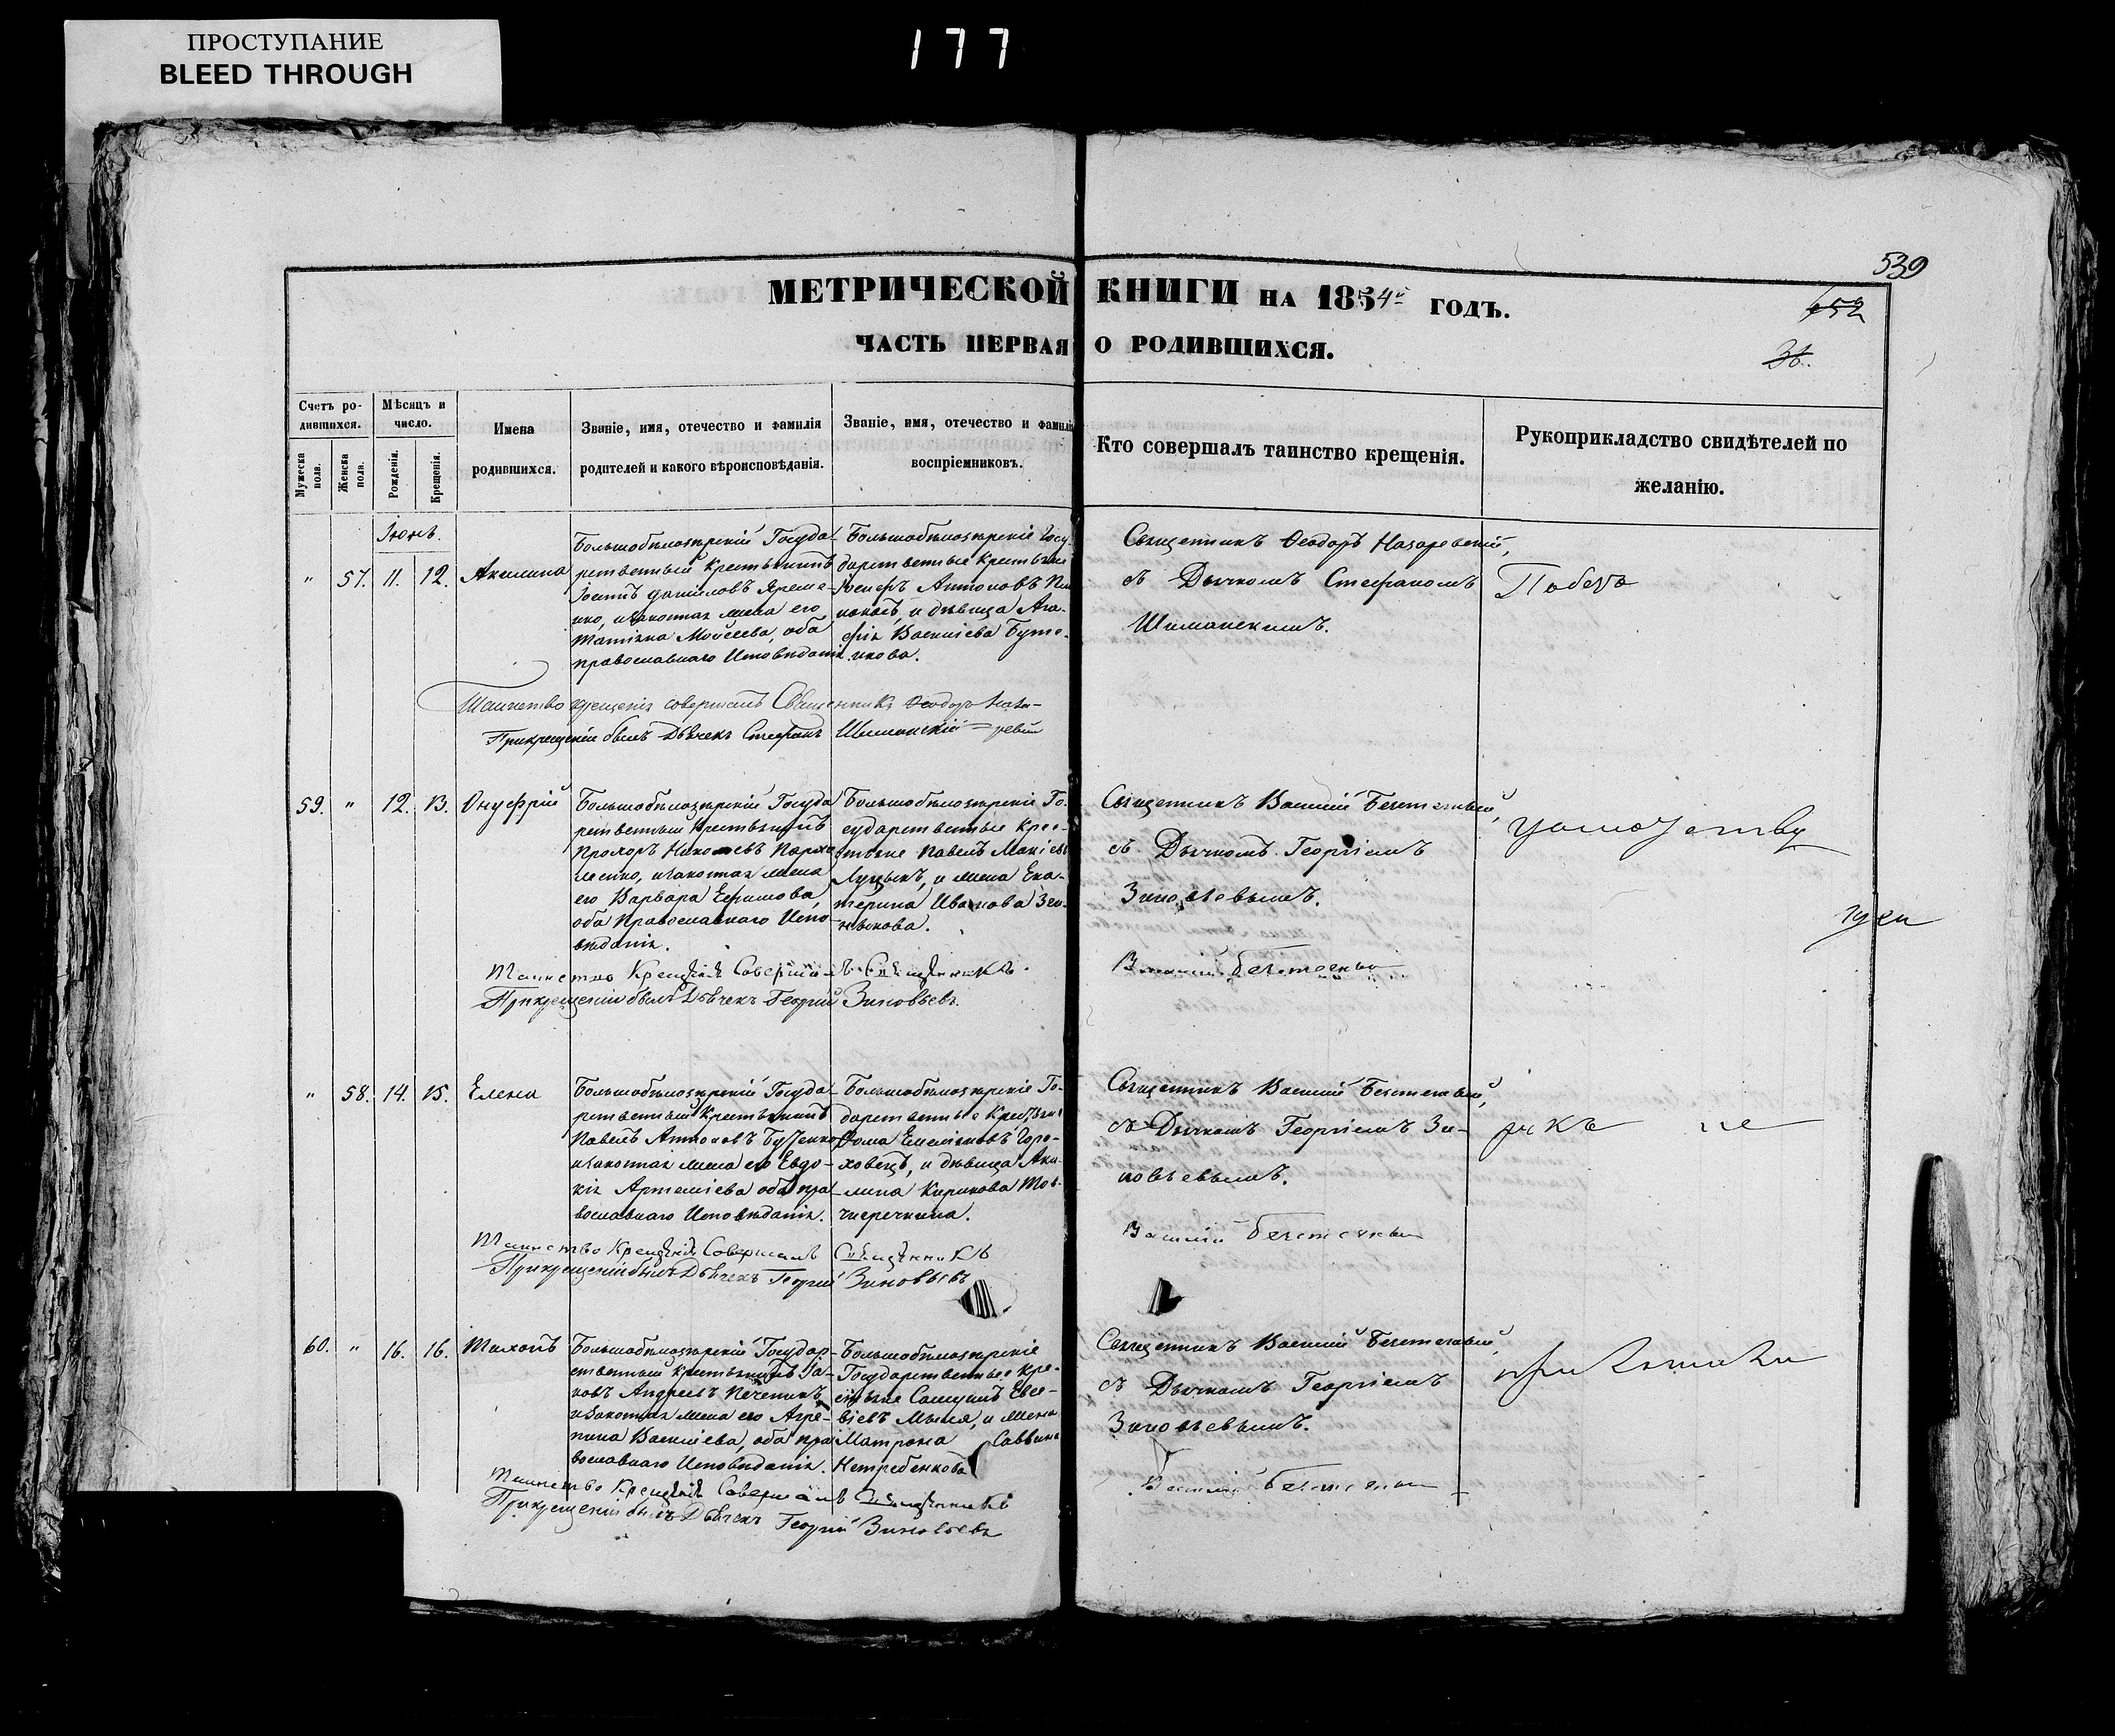 ПРОСТУПАНИЕ
BLEED THROUGH
177
539
652
36.
МЕТРИЧЕСКОЙ КНИГИ НА 1854й ГОДЪ.
ЧАСТЬ ПЕРВАЯ О РОДИВШИХСЯ.
Счетъ ро-
дившихся.
Мужеска пола.
Женска пола.
Мѣсяцъ и
число.
Рожденія.
Крещенія.
Имена
родившихся.
Званіе, имя, отечество и фамилія
родителей и какого вѣроисповѣданія.
Званіе, имя, отечество и фамилія
воспріемниковъ.
Кто совершалъ таинство крещенія.
Рукоприкладство свидѣтелей по
желанію.
Іюнь.
" 57. 11. 12. Акилина
Большобѣлозѣрскій Госуда-
рственный Крестьянинъ
Іосифъ Даниловъ Яреме-
нко, изаконная жена его
Татіана Моѵсеева, оба
православнаго Исповѣданія.
Большобѣлозѣрскіе Госу-
дарственные Крестьяне
Іосифъ Антоновъ
и дѣвица Ага-
фія Василіева Буте-
нкова.
Священникъ Ѳеодоръ Назаревскій,
съ Дьячкомъ Стефаномъ
Шиманскимъ.
Таинство крещенія совершалъ Священникъ Ѳеодоръ Наза-
ревскій
Прикрещеніи былъ Дьячекъ Стефанъ Шиманскій
59. " 12. 13. Онуфрій
Большобѣлозѣрскій Госуда
рственный Крестьянинъ
Прохоръ Николаевъ Пархо
менко, изаконная жена
его Варвара Ефимова,
оба Православнаго Испо-
вѣданія.
Большобѣлозѣрскіе Го-
сударственные Крес-
тьяне Павелъ
Луцыкъ, и жена Ека-
терина Иванова Зи-
нькова.
Священникъ Василій
съ Дьячкомъ Георгіемъ
Зиновьевымъ.
Таинство Крещенія Совершалъ Священникъ
Василій
Прикрещеніи былъ Дьячекъ Георгій Зиновьевъ
" 58. 14. 15. Елена
Большобѣлозѣрскій Госуда-
рственный Крестьянинъ
Павелъ Антоновъ Бутенко
изаконная жена его Евдо-
кія Артеміева оба пра-
вославнаго Исповѣданія.
Большобѣлозѣрскіе Го-
дарственные Крестьяне
Ѳома Емеліановъ Горо-
ховецъ, и дѣвица Аки-
лина Кирикова Тов-
чигречкина.
Священникъ Василій
съ Дьячкомъ Георгіемъ Зи-
новьевымъ.
рукъ не
Таинство Крещенія Совершалъ Священникъ
Василій
Прикрещеніи былъ Дьячекъ Георгій Зиновьевъ
60. " 16. 16. Тихонъ
Большобѣлозѣрскій Государ-
ственный Крестьянинъ Іа-
ковъ Андреевъ Печеникъ,
изаконная жена его Агре-
пина Василіева, оба пра
вославнаго Исповѣданія.
Большобѣлозѣрскіе
Государственные Кре-
стьяне Самуилъ Евсе-
віевъ и жена
Матрона Саввина
Нетребенкова
Священникъ Василій
съ Дьячкомъ Георгіемъ
Зиновьевымъ.
Таинство Крещенія Совершалъ Священникъ
Василій
Прикрещеніи былъ Дьячекъ Георгій Зиновьевъ